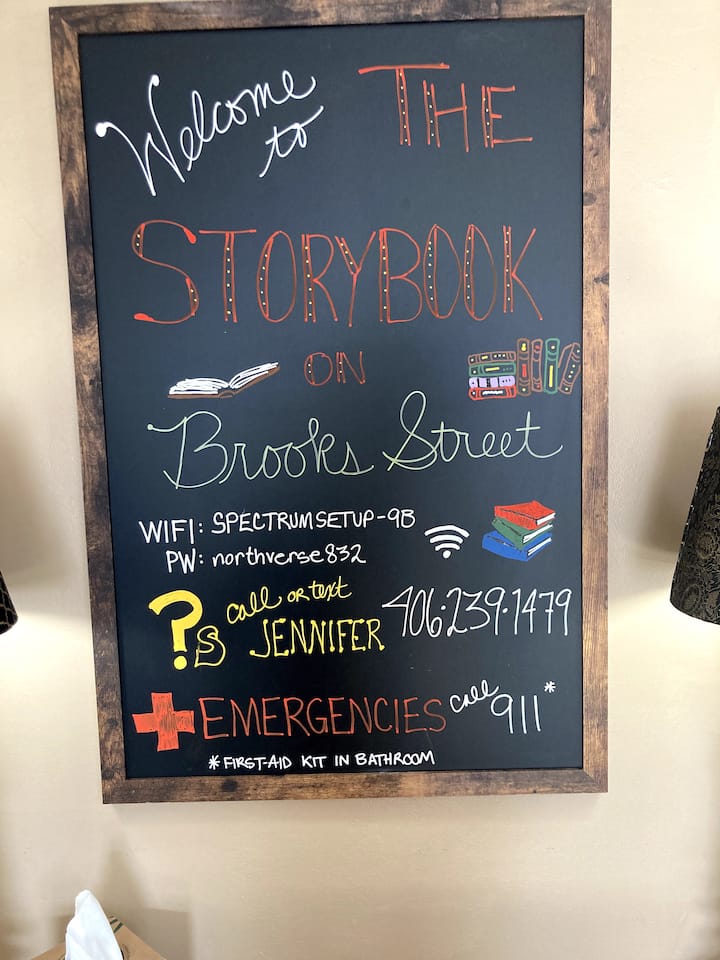 Welcome to THE
STORYBOOK
ON
Brooks Street
WIFI: SPECTRUMSETUP-9B
PW: northverse832
?s call or text JENNIFER 406·239·1479
EMERGENCIES call 911*
*FIRST-AID KIT IN BATHROOM